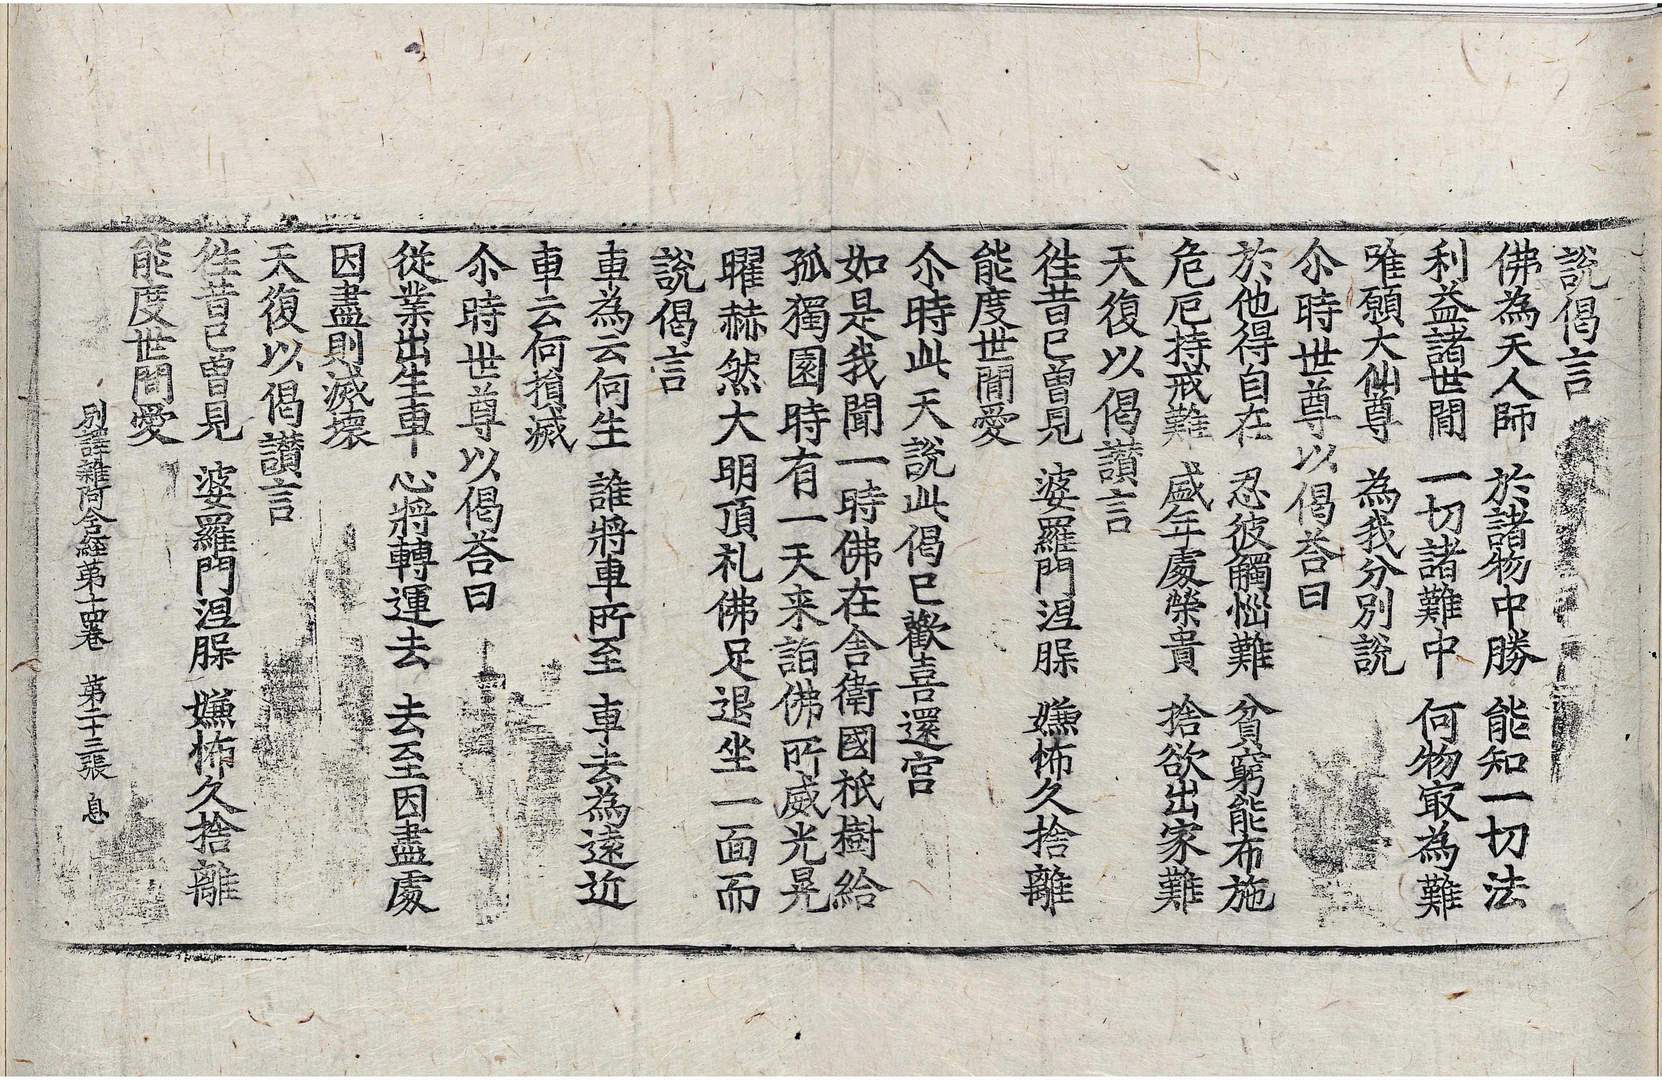 說偈言
佛為天人師　於諸物中勝　能知一切法
利益諸世間　一切諸難中　何物㝡為難
唯願大仙尊　為我分別說
尒時世尊以偈荅曰
於他得自在　忍彼觸惱難　貧窮能布施
危厄持戒難　盛年處榮貴　捨欲出家難
天復以偈讃言
徃昔已曾見　婆羅門涅槃　嫌怖久捨離
能度世間愛
尒時此天說此偈已歡喜還宮
如是我聞一時佛在舍衛國祇樹給
孤獨園時有一天来詣佛所威光晃
曜赫然大明頂礼佛足退坐一面而
說偈言
車為云何生　誰將車所至　車去為遠近
車云何損滅
尒時世尊以偈荅曰
從業出生車　心將轉運去　去至因盡處
因盡則滅壞
天復以偈讃言
徃昔已曾見　婆羅門涅槃　嫌怖久捨離
能度世間愛
別譯雜阿含經第十四卷　第二十三張　息